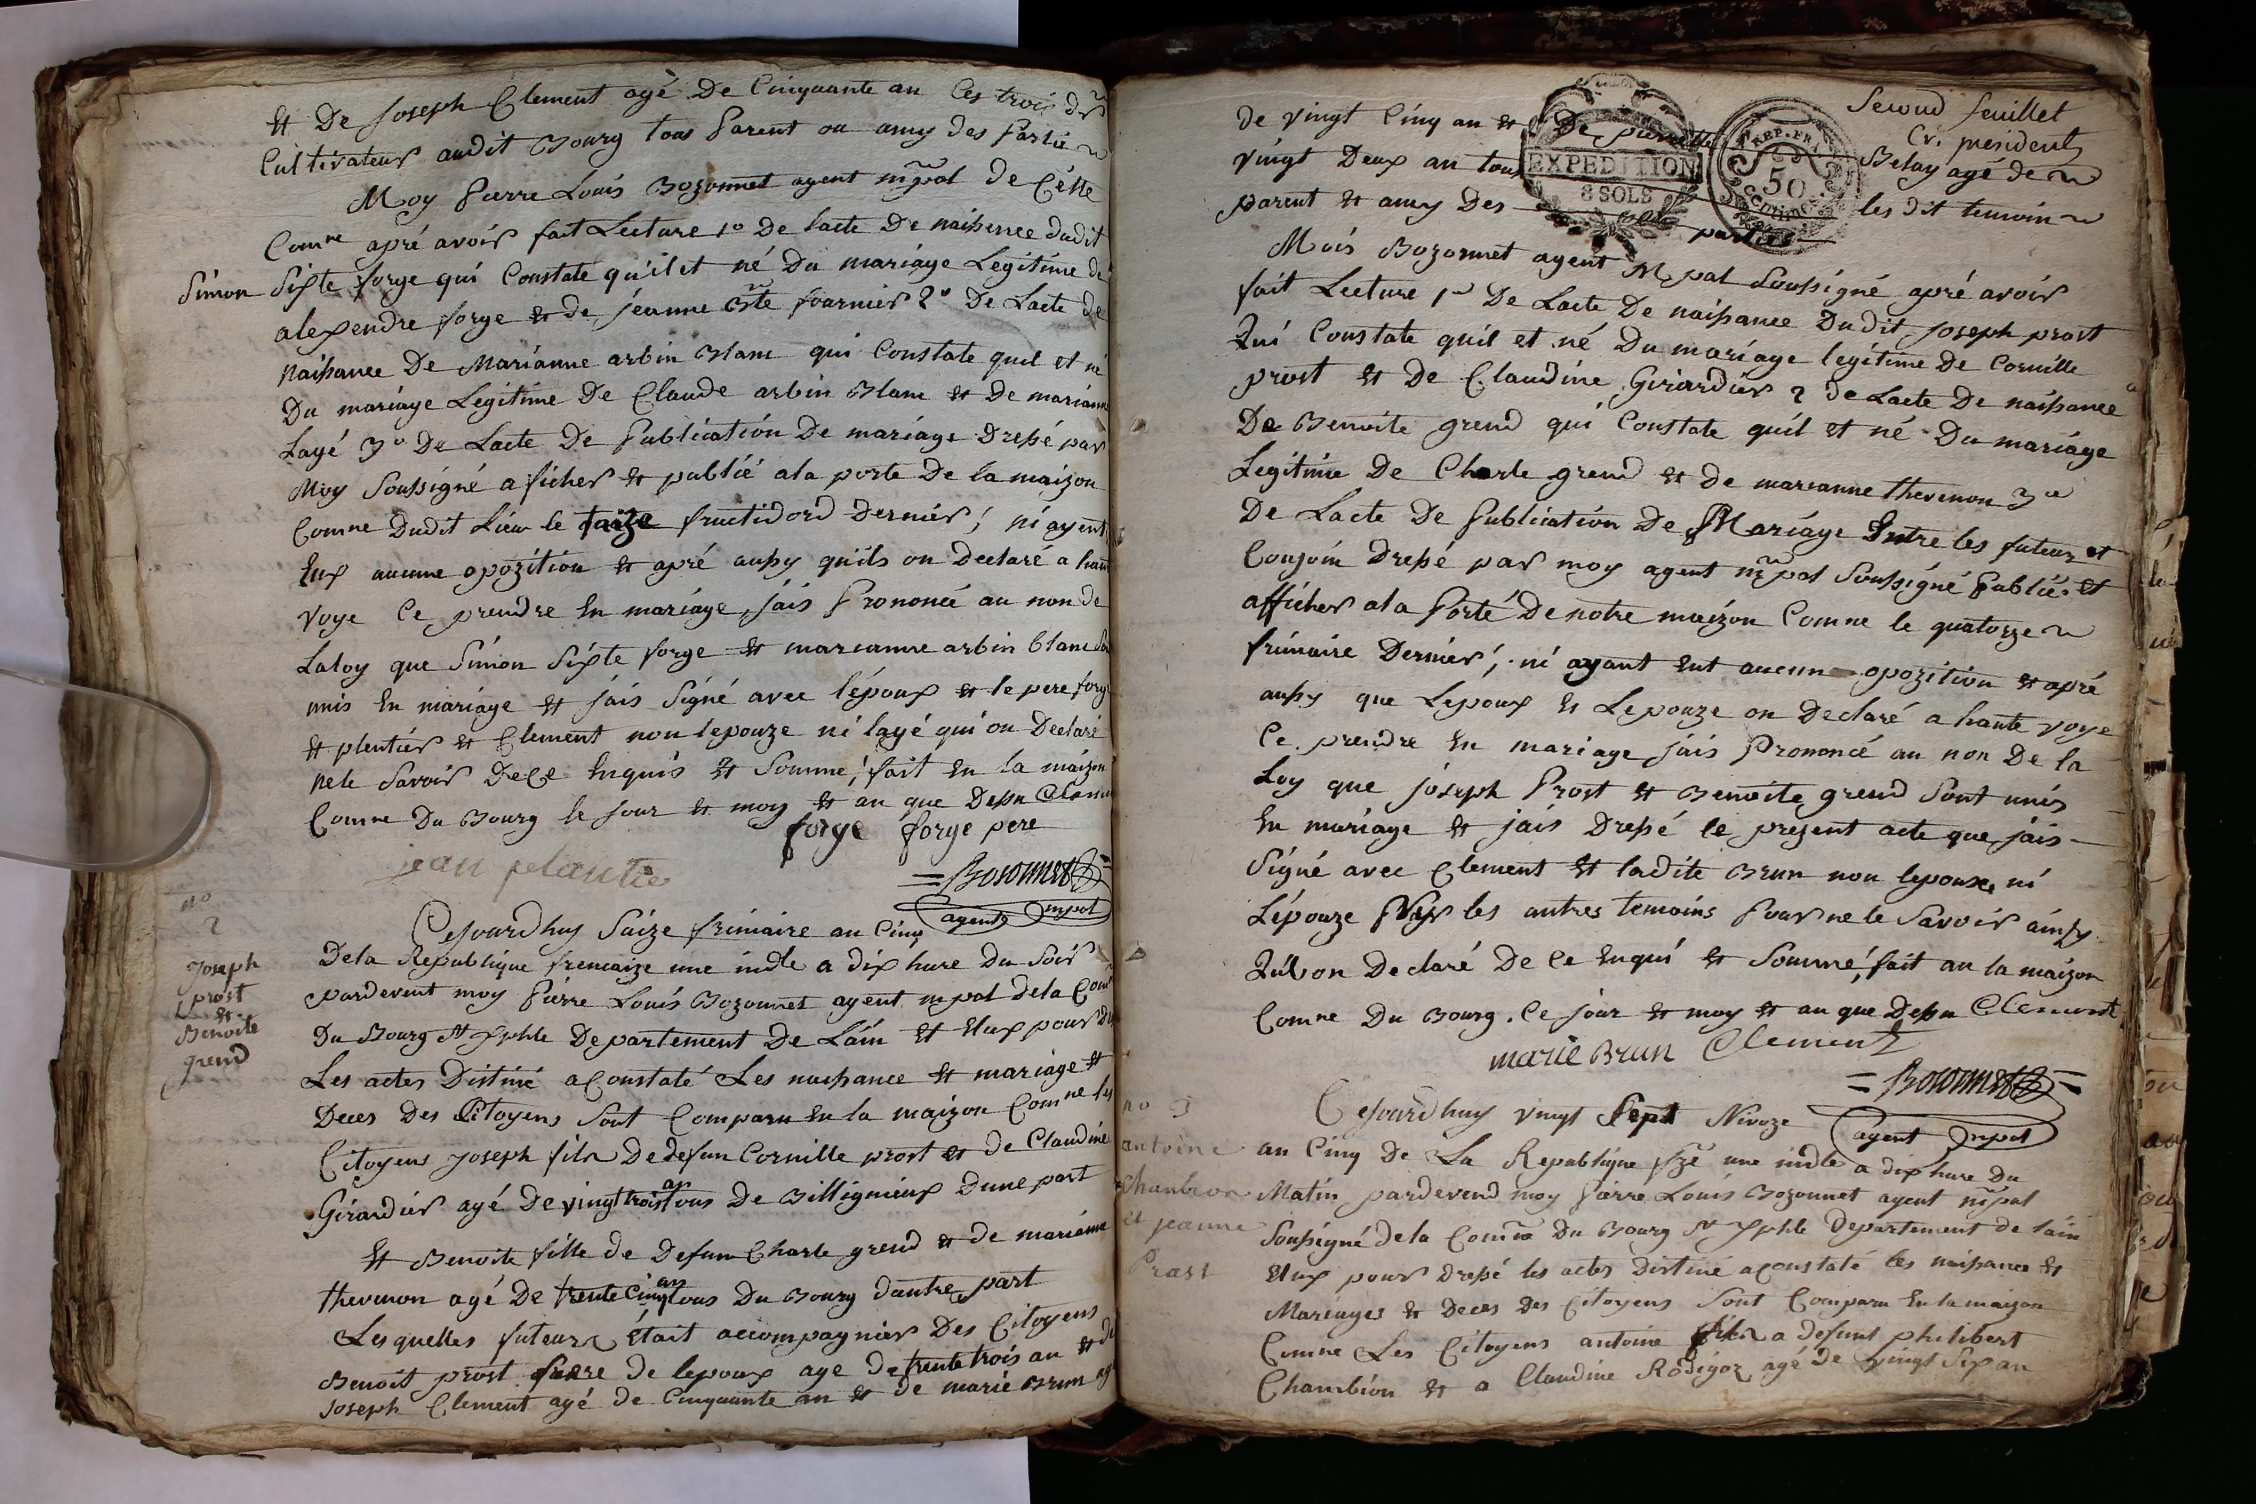 Et De Joseph Clement agé De Cinquante an Ces trois dr
Cultivateur audit Bourg tous Parent ou amy des Partie
Moy Pierre Louis Bozonnet agent mpal de Cette
Comne apré avoir fait Lecture 1o De lacte De naissence dudit
Simon Sixte forge qui Constate qu'il et né Du mariage Legitime de
alexendre forge et de jeanne Bte fournier 2o De Lacte de
naissance De Marianne arbin Blanc qui Constate quil et né
Du mariage Legitime De Claude arbin Blanc et De marianne
Layé 3o De Lacte De Publication De mariage Dressé par
Moy Soussigné aficher et publié ala porte De la maizon
Comne Dudit Lieu le fructidord Dernier, ni ayent
Eux aucune opozition et apré aussy quils on Declaré a haute
voye Ce prendre En mariage, jais Prononcé au non de
Laloy que Simon Sixte forge et marianne arbin blanc Son
unis En mariage et jais Signé avec l'époux et le pere forge
et plentier et Clement non lepouze ni layé qui on Declaré
nele Savoir De Ce Enquis Et Somme, fait En la maizon
Comne Du Bourg le Jour et moy et an que Dessu Clement
forge forge pere
jean plantie
= Bozonnet =
agent mpal
no
2
Joseph
prost
et
Benoite
grend
Cejourdhuy Saize frimaire an Cinq
Dela Republique frencaize une indle a dix hure Du Soir
pardevent moy Pierre Louis Bozonnet agent mpal dela Comne
Du Bourg St Xphle Departement De Lain Et Elux pour
Les actes Distiné aConstaté Les naissance et mariage et
Deces Des Citoyens Sont Comparu En la maizon Comne les
Citoyens Joseph fils De defun Cornille prost et de Claudine
Girardier agé De vingt trois an tous De Billignieux Dune part
Et Benoite fille de Defun Charle grend et de marianne
thevenon agé De trente Cinq an tous Du Bourg dautre part
Lesquelles futeurs était accompagnier Des Citoyens
Benoit prost frere de lepoux age de trente trois an et de
Joseph Clement agé de Cinquante an et de marie Brun agé
Second feuillet
Cr. president
de vingt Cinq an et De pierrette Belay agé de
vingt Deux an tous les dit temoin
parent et amy Des parties
EXPEDITION
8 SOLS
REP. FRA.
50
centimes
Mois Bozonnet agent Mpal Soussigné apré avoir
fait Lecture 1o De Lacte De naissance Dudit Joseph prost
Qui Constate quil et né Du mariage legitime De Cornille
prost et De Claudine Girardier 2 de Lacte De naissance
De Benoite grend qui Constate quil et né Du mariage
Legitime De Charle grend et de marianne thevenon 3o
De Lacte De Publication De Mariage Entre les futeur et
Conjoin Dressé par moy agent mpal Soussigné Publiér et
afficher ala Porte De notre maizon Comne le quatorze
frimaire Dernier, ni ayant Eut aucune opozition et apré
aussy que Lepoux et Lepouze on Declaré a haute voye
Ce prendre En mariage jais Prononcé au non De la
Loy que joseph Prost et Benoite grend Sont unis
En mariage et jais Dressé le present acte que jais
Signé avec Clement et ladite Brun non lepoux, ni
L'épouze Ny les autres temoins Pour ne le Savoir ainsy
Quil on Declaré De Ce Enqui et Sommé, fait an la maizon
Comne Du Bourg. Ce jour et moy et an que Dessu Clement
marie Brun Clement
= Bozonnet =
agent mpal
no 3
antoine
chanbion
et jeanne
Prost
Cejourdhuy vingt Sept Nivoze
an Cinq De La Republique fze une indle a dix hure Du
Matin, pardevend moy Pierre Louis Bozonnet agent mpal
Soussigné dela Comne Du Bourg St Xphle Departement de lain
Elux pour Dressé les actes Distiné aConstaté les naissance et
Mariages et Deces Des Citoyens Sont Comparu En la maizon
Comne Les Citoyens antoine fils a defunt philibert
Chambion et a Claudine Rodigoz agé De vingt Six an